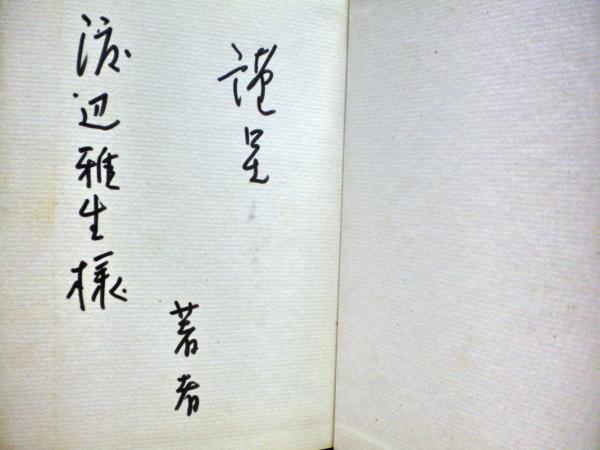 謹呈
著者
渡辺雅生様